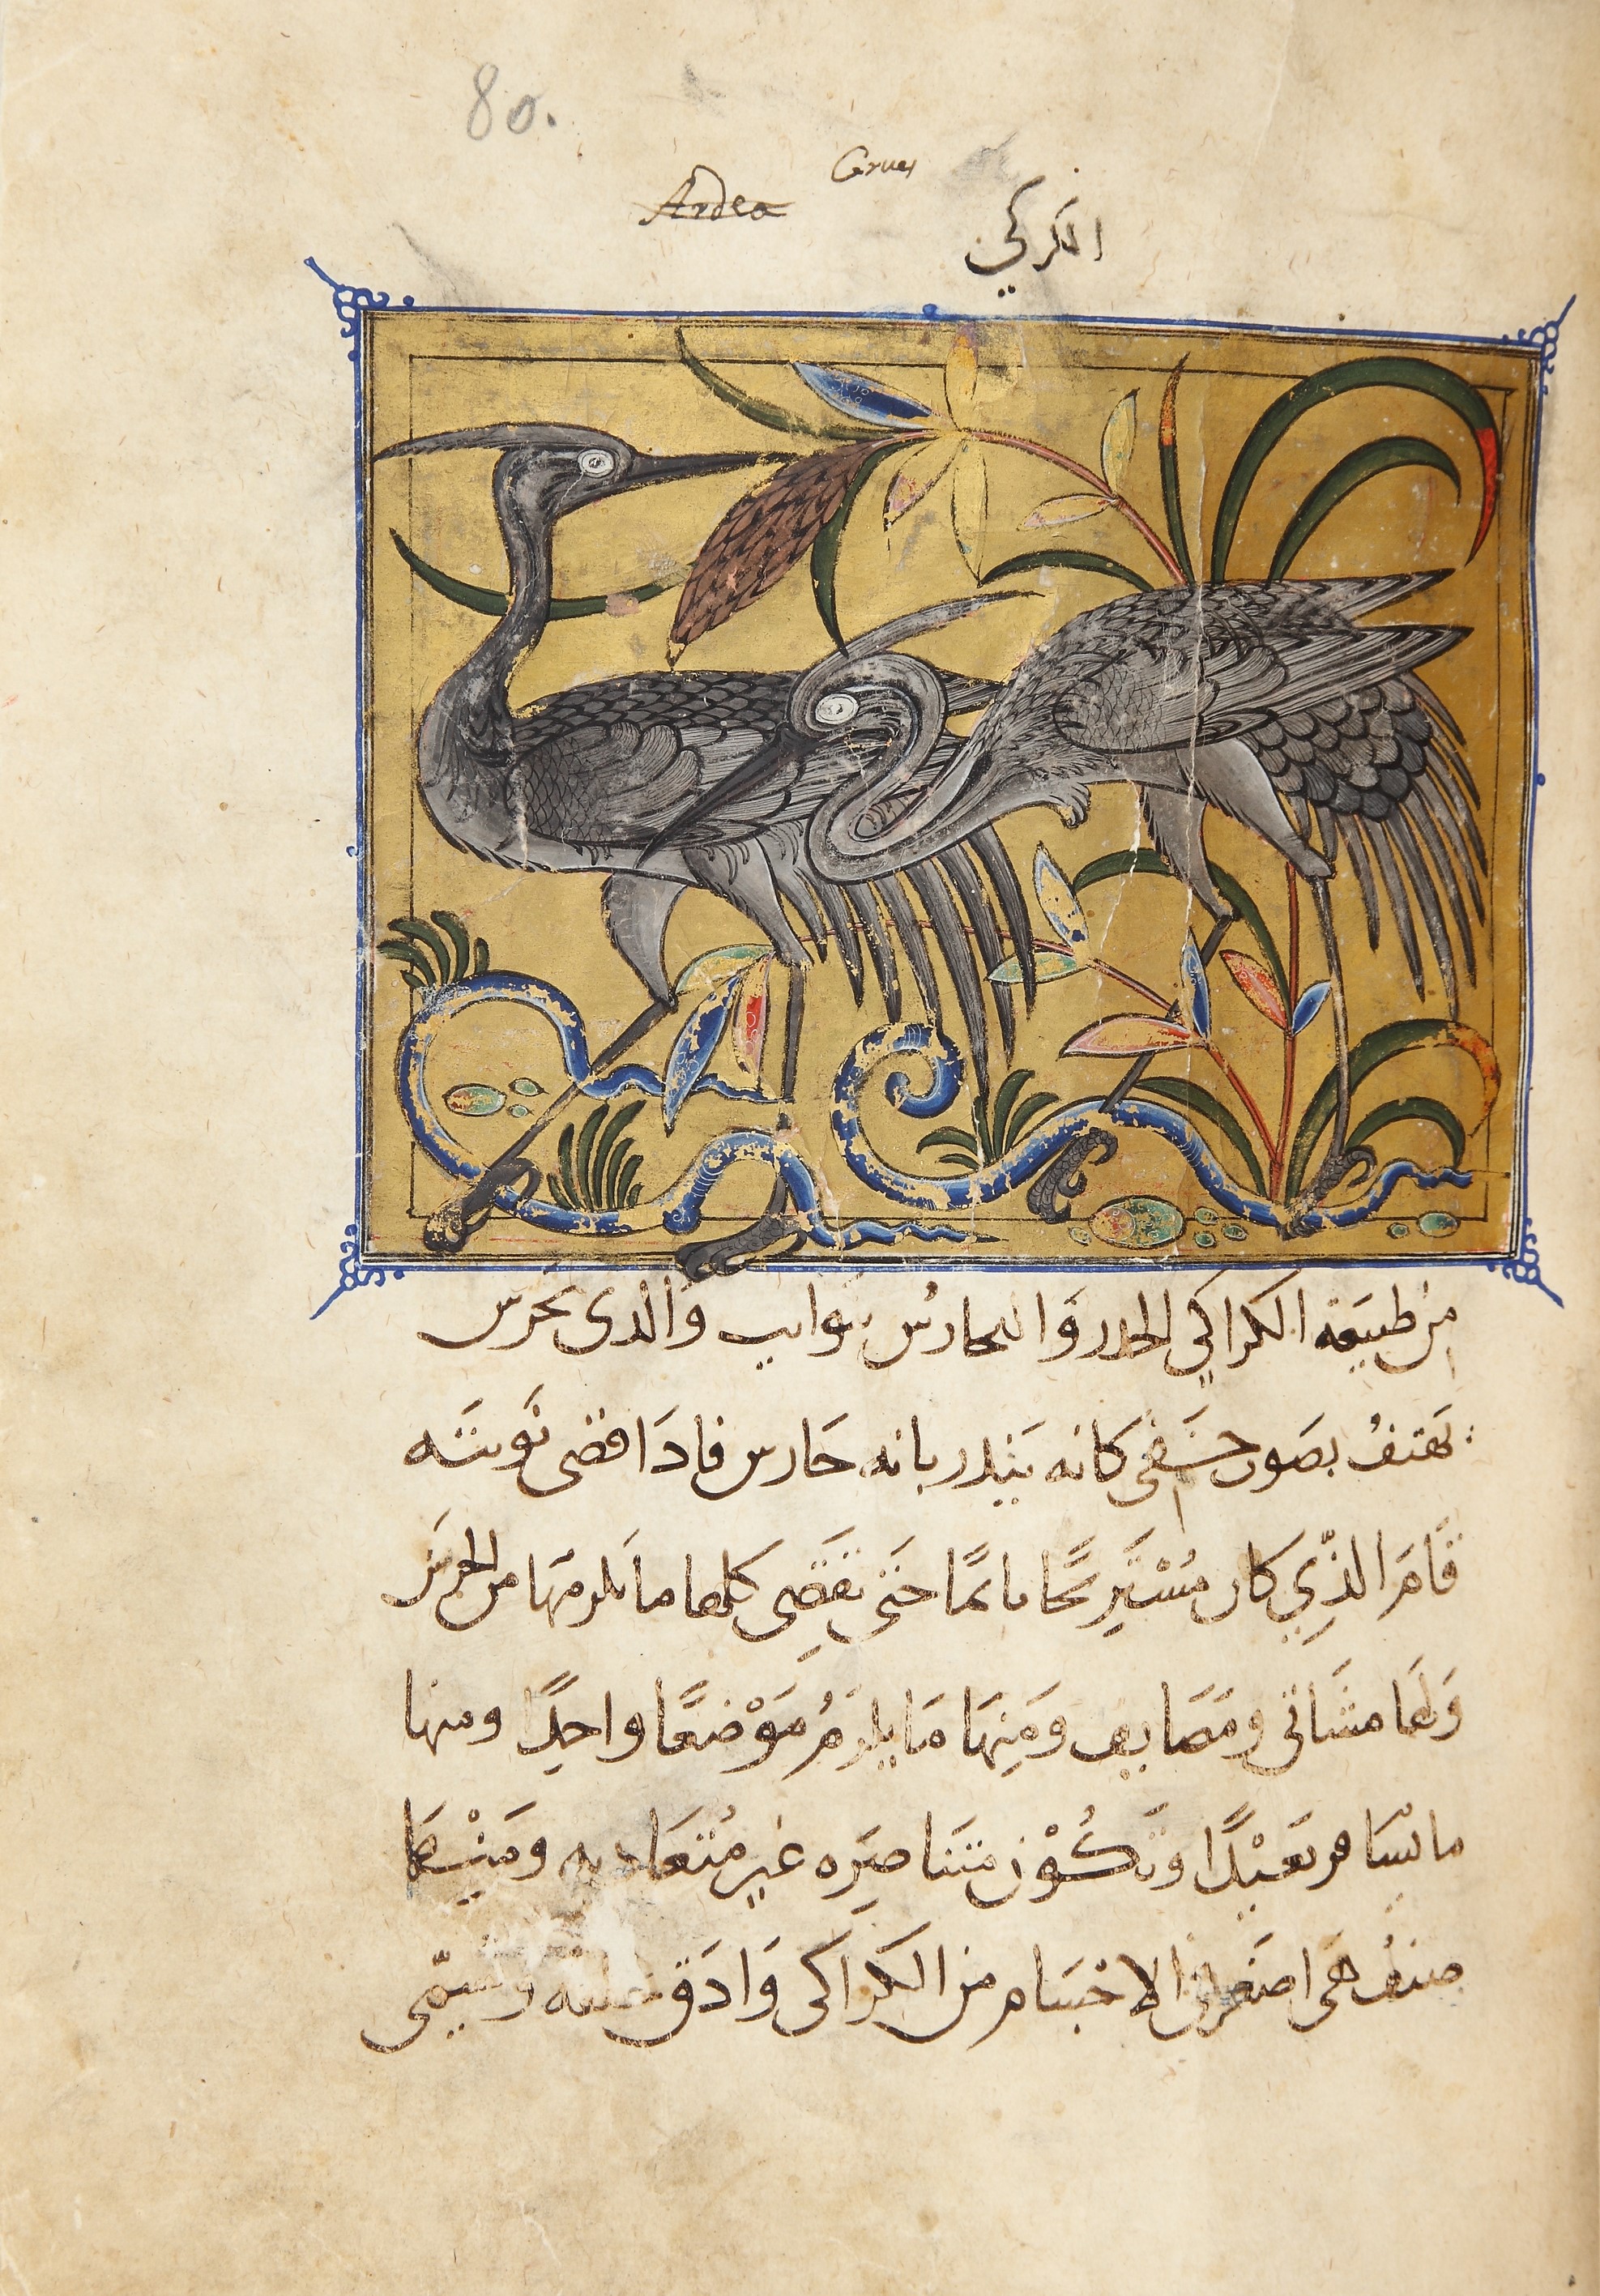 80.
Grues
Ardea
الكركي
من طبيعة الكراكي الحدر والحارس بنوايب والدى يحرس
يهتف بصوت خفي كانه ينذر بانه حارس فادا قضى نوبته
قام الذي كان مستريحًا نايمًا حتى تقضي كلها ما يلزمها من الحرس
ولها مشاتي ومصايف ومنها ما يلزم موضعًا واحدًا ومنها
ما يسافر بعيدًا وتكون متناصره غير متعاديه ومنها
صنف هي اصغر الاجسام من الكراكي وادق ويسمى